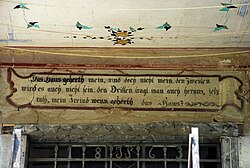 Dis Haus geherth mein, und doch nicht mein, den Zweiten
wird es auch nicht sein, den Driten tragt man auch heraus, jetz
nuh, mein Freind wenn geherth das Haus?
18 35